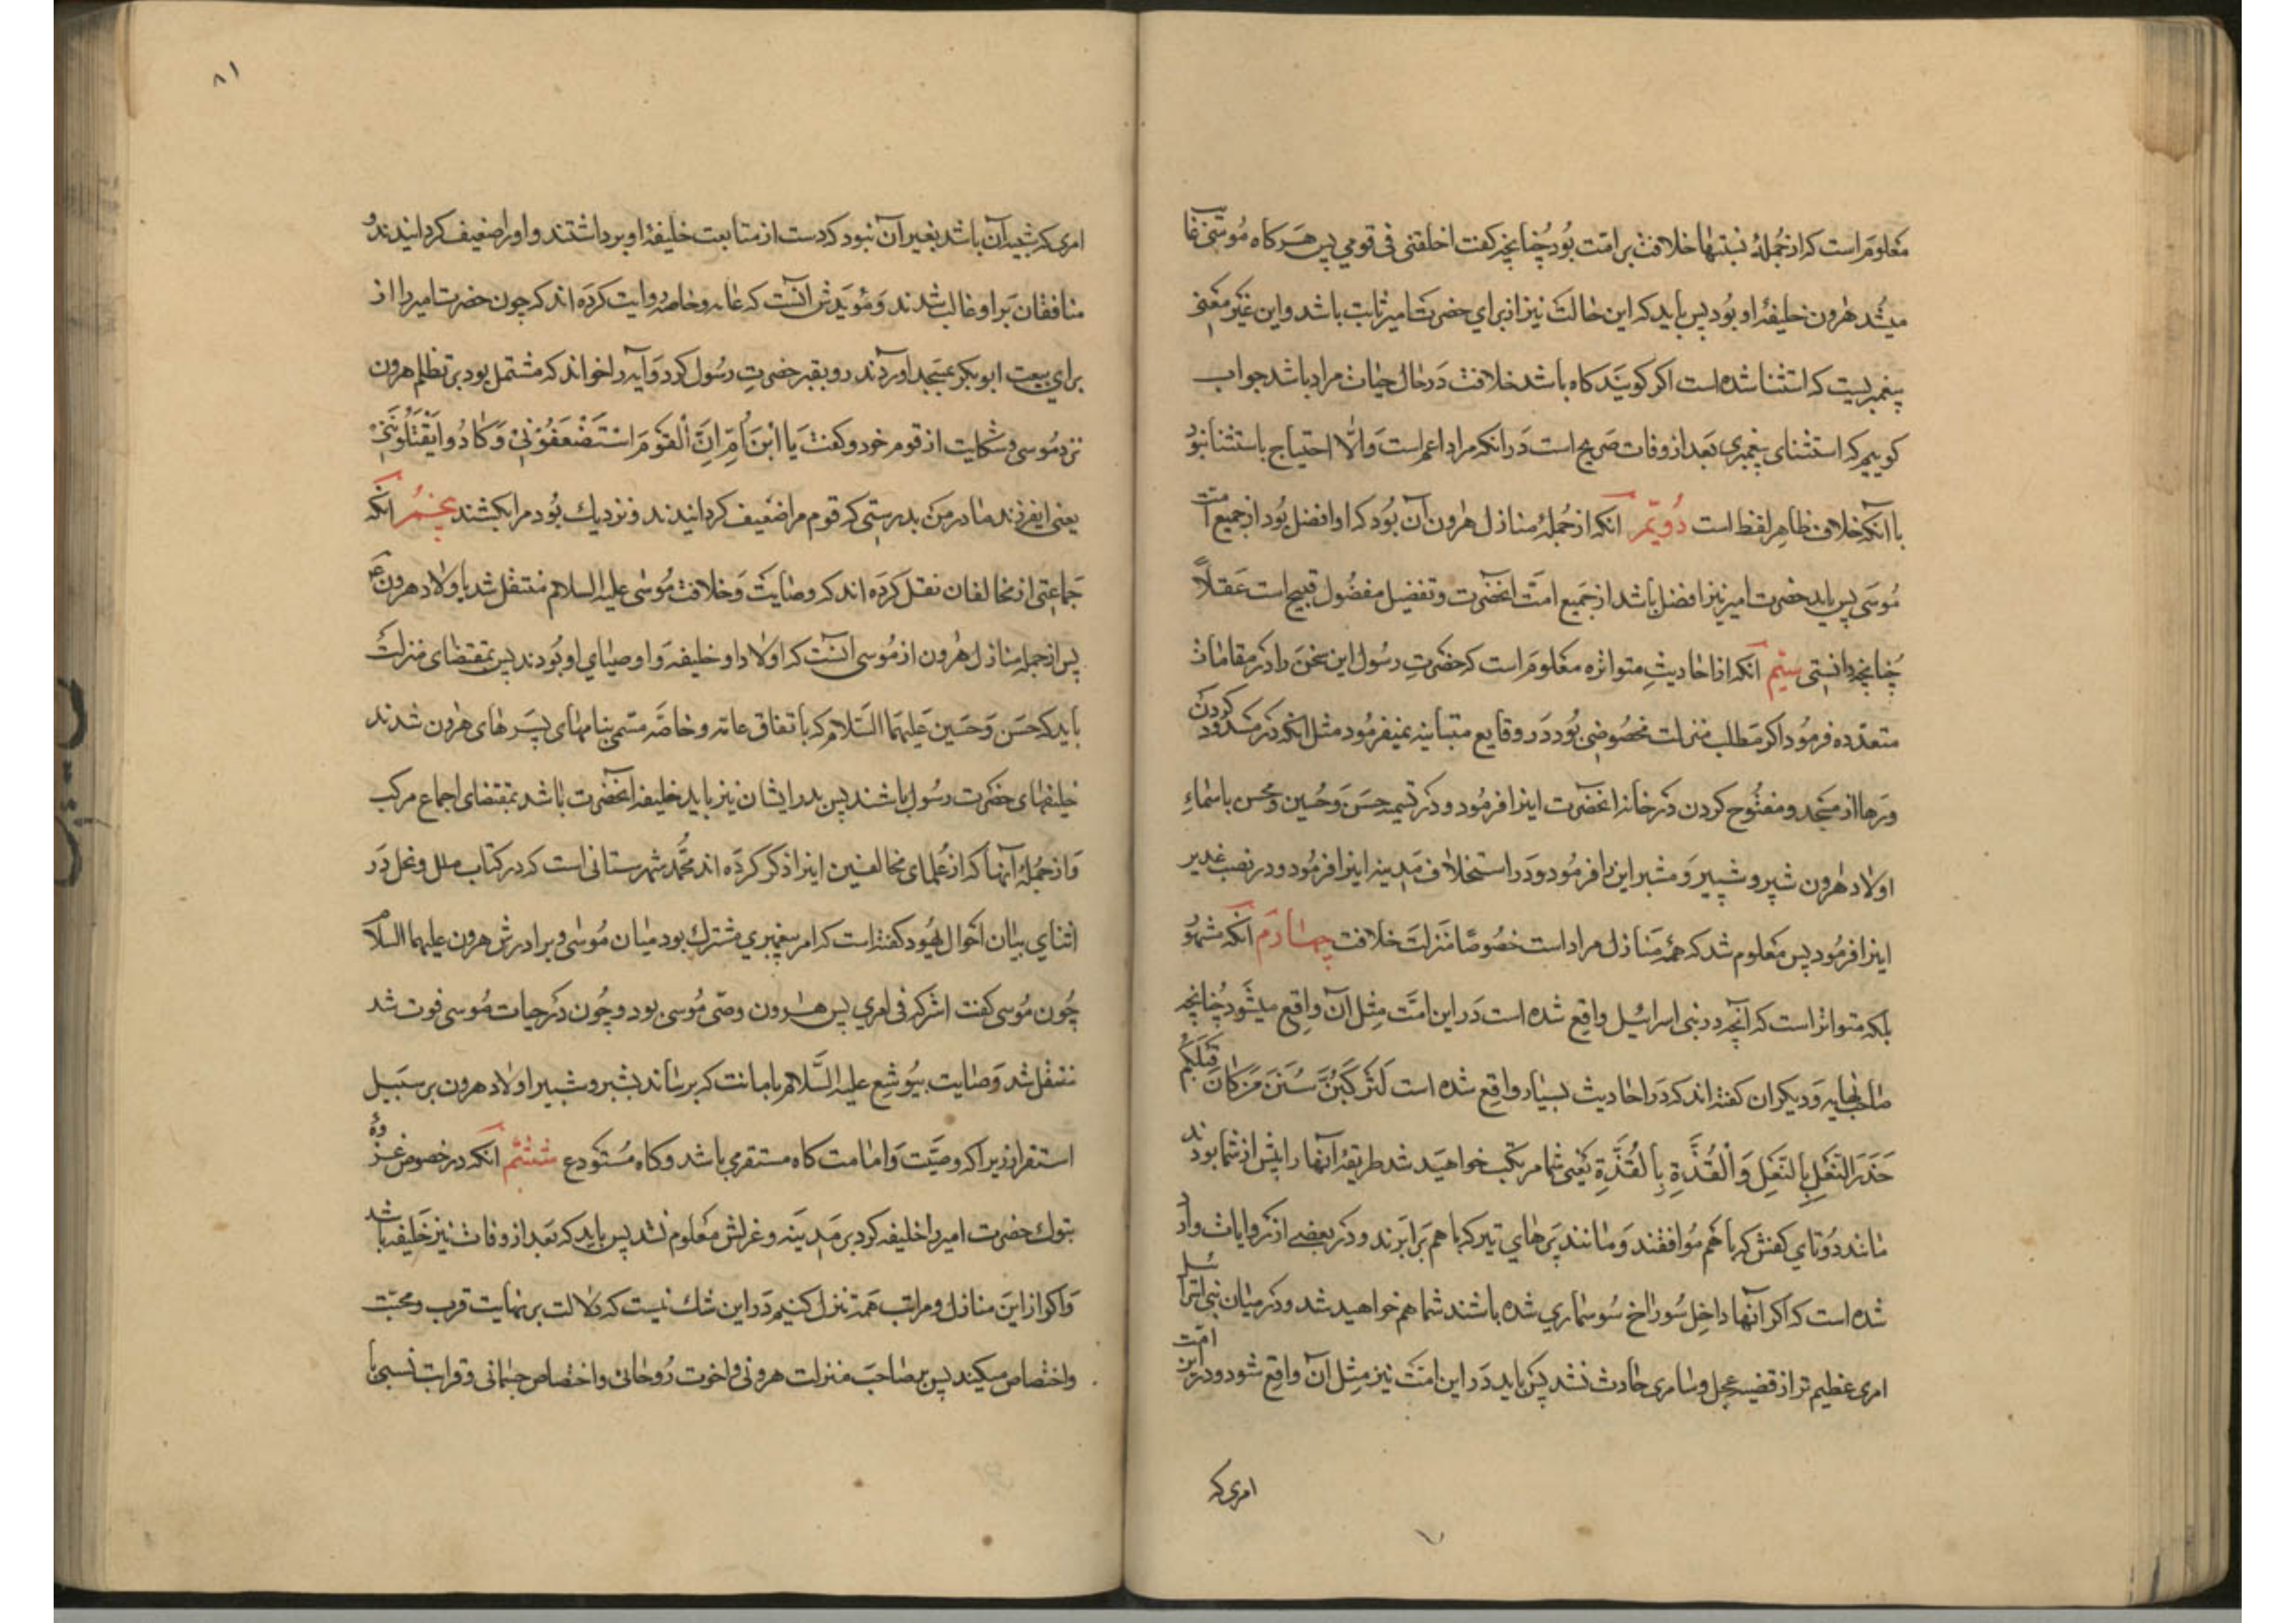 معلومَ است که از جُملهٔ نسبتها خلافت بر امّت بُود چُنانچه کفت اخلفنی فی قومی پس هَر کاه مُوسی غایب
میشُد هٰرون خلیفهٔ او بُود پس باید که این حٰالت نیز از برای حضرت امیر ثابت باشد و این غیَر معنی
پیغمبریست که استثنا شده است اکر کویَند کاه باشد خلافت دَر حٰال حیٰات مراد باشد جواب
کوییم که استثنای پیغمبری بَعد از وفات صَریح است دَر انکه مراد اعم است وَالّا احتیاج باستثنا نبود
با آنکه خلاف ظاهِر لفظ است دُویّم انکه از جُملهٔ منازل هٰرون آن بُود که او افضل بُود از جمیع امّت
مُوسَی پس باید حضرت امیر نیز افضل باشد از جَمیع امّت آنحضرت و تفضیل مفضُول قبیح است عَقلاً
چُنانچه دانستی سیّم آنکه از احٰادیثِ متواتره معَلومَ است که حضَرتِ رسُول این سخن را در مقامات
متعدّده فرمُود اکر مَطلب منزلت مخصُوصی بُود دَر وقایع متباینه نمیفرمُود مثل انکه در مسدُود کردن
دَرها از مسَجد و مفتُوح کردن دَر خانهٔ آنحضَرت اینرا فرمُود و در تسمیهٔ حسَنَ وَ حُسین و محسن باسماءِ
اولاد هٰرون شبّر و شبیر وَ مشبر این را فرمُود و دَر استخلاف مَدینه اینرا فرمُود و در نصب غدیر
اینرا فرمُود پس مَعلوم شد که همهٔ منَازل مراد است خصُوصًا مَنزلت خلافت چهٰارَم آنکه مشهُور
بلکه متواتر است که آنچه در بنی اسرائیل واقِع شده است دَر این امّت مِثل آن واقع میشَود چُنانچه
صٰاحب نهایه وَ دیکران کفته اند که دَر احٰادیث بسیٰار واقِع شده است لَتَرْکَبُنَّ سُنَنَ مَنْ کَانَ قَبْلَکُمْ
حَذَوَ النَّعْلِ بِالنَّعْلِ وَ الْقُذَّةِ بِالْقُذَّةِ یَعنی شما مرتکب خواهیَد شد طریقهٔ آنها را پیش از شما بودند
مٰانند دُوتای کفش که با هَم مُوافقند وَ مٰانند پَرهٰای تیر که با هم بَرابَرند و دَر بعضی از روایات وارد
شده است که اکر آنها داخِل سُورٰاخ سُوسماری شده باشند شما هم خواهید شد و در میٰان بنی اسرائیل
امری عظیم تر از قضیهٔ عجل و سٰامری حٰادث نشد پس باید دَر این امّت نیز مِثل آن واقِع شود و در این امّت
امری که
۸۱
امری که شبیه آن باشد بغیر آن نبود که دست از متابعت خلیفهٔ او برداشتند و او را ضعیف کردانیدند و
منافقان بَر او غالب شدند وَ مُؤیّدش آنست که عامه و خاصه روایت کرَده اند که چون حضرت امیر را از
برای بیعت ابوبکر بمسَجد اوردند رو بقبر حضرتِ رسُول کرد وَ آیه را خواند که مشتمل بود بر تظلم هرون
نزد مُوسی و شکایت از قوم خود و کفت یَا ابْنَ اُمَّ اِنَّ الْقَوْمَ اسْتَضْعَفُوْنِیْ وَ کَادُوا یَقْتُلُوْنَنِیْ
یعنی ایفرزند مٰادر من بدرستی که قوم مرا ضعیف کردانیدند و نزدیك بُود مرا بکشند پنجمُ آنکه
جمَاعتی از مخالفان نقل کرَده اند که وصٰایت وَ خلافت مُوسٰی علیه السلام منتقل شد باولٰاد هرون ع
پس از جمله منازل هٰرون از مُوسی آنست که اولٰاد او خلیفه وَ اوصیٰای او بُودند پس بمقتضای منزلت
باید که حسَن وَ حسَین علیهمَا السَّلام که باتفاق عامه و خاصَّه مسّمی بنامهٰای پسَرهای هٰرون شدند
خلیفهای حضرت رسُول باشند پس پدر ایشان نیز باید خلیفهٔ آنحضَرت باشد بمقتضای اجماع مرکب
وَ از جمُلهٔ آنها که از عُلمای مخالفین اینرا ذکر کردَه اند محمَّد شهرستانی است که در کتاب ملل و نحل دَر
اثنای بیٰان احوال یهُود کفته است که امر پیغمبری مشترك بود میٰان مُوسی و برادرش هرون علیهما السلام
چُون مُوسی کفت اشرکه فی امری پس هٰرون وصّی مُوسی بود و چُون دَر حیات مُوسی فوت شد
منتقل شد وَصٰایت بیُوشَع علیه السَّلام بامانت که برسٰاند بشبر و شبیر اولاد هرون بر سَبیل
استقرار زیرا که وصیَّت وَ امٰامت کاه مستقر می باشد و کاه مُستَودع ششم آنکه در خصُوص غزوهٔ
تبوك حضرت امیر را خلیفه کرد بر مَدینه و عزلش معلُوم نشد پس باید که بَعد از وفات نیز خلیفه باشد
وَ اکر از این منازل و مراتب همَه تنزل کنیم دَر این شك نیست که دلٰالت بر نهایت قرب و محبّت
و اختصاص میکند پس صٰاحب منزلت هرونی و اخوت رُوحانی و اختصاص جسمٰانی و قرابت نسبی با